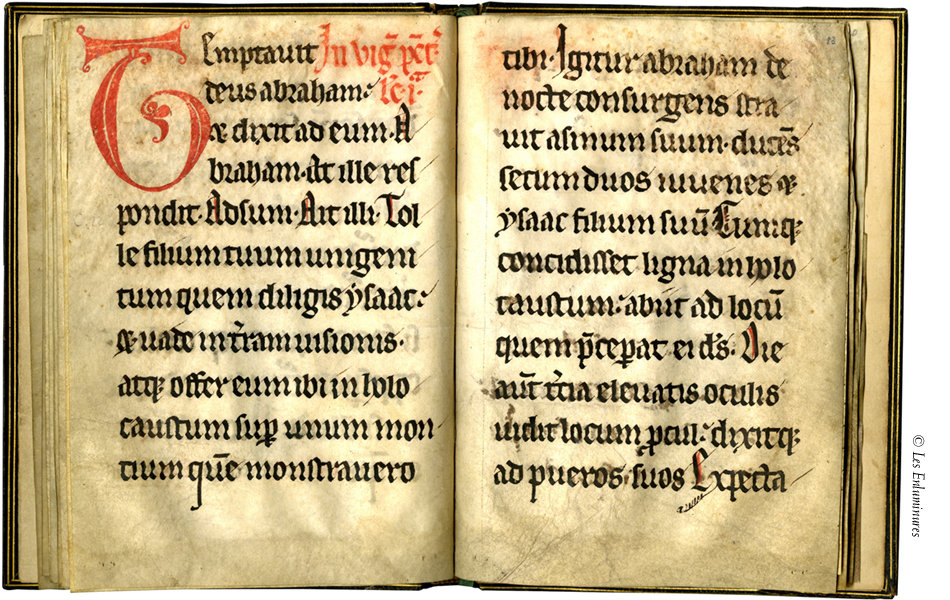 Temptavit In vig̃ pẽt.
deus abraham: lc̃ i.
⁊ dixit ad eum· A
braham· At ille res
pondit· Adsum· Ait illi· Tol
le filium tuum unigeni
tum quem diligis ysaac:
⁊ uade in t̃ram uisionis·
atq; offer eum ibi in holo
caustum sup̲ unum mon
tium quẽ monstravero
tibi· Igitur abraham de
nocte consurgens stra
uit asinum suum· ducẽs
secum duos iuvenes ⁊
ysaac filium suũ· Cumq;
concidisset ligna in holo
caustum: abiit ad locũ
quem p̃ceperat ei d̃s· Die
aũt t̃cia eleuatis oculis
uidit locum p̲cul: dixitq;
ad pueros suos Expecta
© Les Enluminures